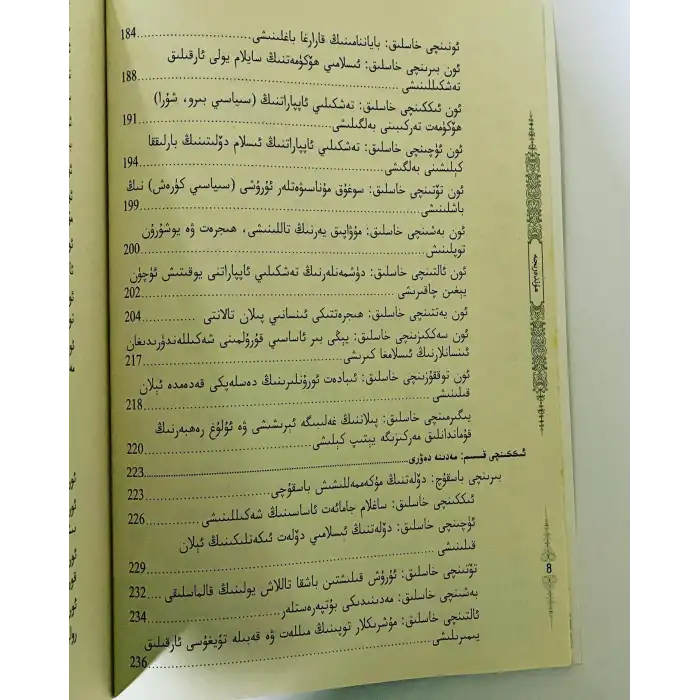 ئونىنچى خاسلىق: باياننامىنىڭ قارارغا باغلىنىشى..........184
ئون بىرىنچى خاسلىق: ئىسلامىي ھۆكۈمەتنىڭ سايلام يولى ئارقىلىق
تەشكىللىنىشى..........188
ئون ئىككىنچى خاسلىق: تەشكىلىي ئاپپاراتنىڭ (سىياسىي بىرو، شۇرا)
ھۆكۈمەت تەركىبىنى بەلگىلىشى..........191
ئون ئۈچىنچى خاسلىق: تەشكىلىي ئاپپاراتنىڭ ئىسلام دۆلىتىنىڭ بارلىققا
كېلىشىنى بەلگىلىشى..........194
ئون تۆتىنچى خاسلىق: سوغۇق مۇناسىۋەتلەر ئۇرۇشى (سىياسىي كۈرەش) نىڭ
باشلىنىشى..........199
ئون بەشىنچى خاسلىق: مۇۋاپىق يەرنىڭ تاللىنىشى، ھىجرەت ۋە يوشۇرۇن
توپلىنىش..........200
ئون ئالتىنچى خاسلىق: دۈشمەنلەرنىڭ تەشكىلىي ئاپپاراتنى يوقىتىش ئۈچۈن
يىغىن چاقىرىشى..........202
ئون يەتتىنچى خاسلىق: ھىجرەتتىكى ئىنسانىي پىلان تالانتى..........204
ئون سەككىزىنچى خاسلىق: يېڭى بىر ئاساسىي قۇرۇلمىنى شەكىللەندۈرىدىغان
ئىنسانلارنىڭ ئىسلامغا كىرىشى..........217
ئون توققۇزىنچى خاسلىق: ئىبادەت ئورۇنلىرىنىڭ دەسلەپكى قەدەمدە ئېلان
قىلىنىشى..........218
يىگىرمىنچى خاسلىق: پىلاننىڭ غەلىبىگە ئېرىشىشى ۋە ئۇلۇغ رەھبەرنىڭ
قوماندانلىق مەركىزىگە يېتىپ كېلىشى..........220
ئىككىنچى قىسىم: مەدىنە دەۋرى..........223
بىرىنچى باسقۇچ: دۆلەتنىڭ مۇكەممەللىشىش باسقۇچى..........223
ئىككىنچى خاسلىق: ساغلام جامائەت ئاساسىنىڭ شەكىللىنىشى..........226
ئۈچىنچى خاسلىق: دۆلەتنىڭ ئىسلامىي دۆلەت ئىكەنلىكىنىڭ ئېلان
قىلىنىشى..........229
تۆتىنچى خاسلىق: ئۇرۇش قىلىشتىن باشقا تاللاش يولىنىڭ قالماسلىقى..........232
بەشىنچى خاسلىق: مەدىنىدىكى بۇتپەرەستلەر..........234
ئالتىنچى خاسلىق: مۇشرىكلار توپىنىڭ مىللەت ۋە قەبىلە تۇيغۇسى ئارقىلىق
يىمىرىلىشى..........236
مۇندەرىجە
8